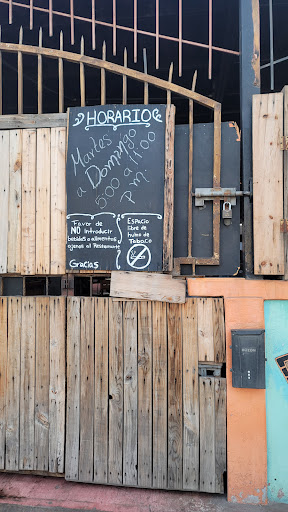 HORARIO
Martes
a Domingo
5:00 a 11:00
P.m.
Favor de
NO introducir
bebidas o alimentos
ajenos al Restaurante
Gracias
ESPACIO
libre de
humo de
Tabaco